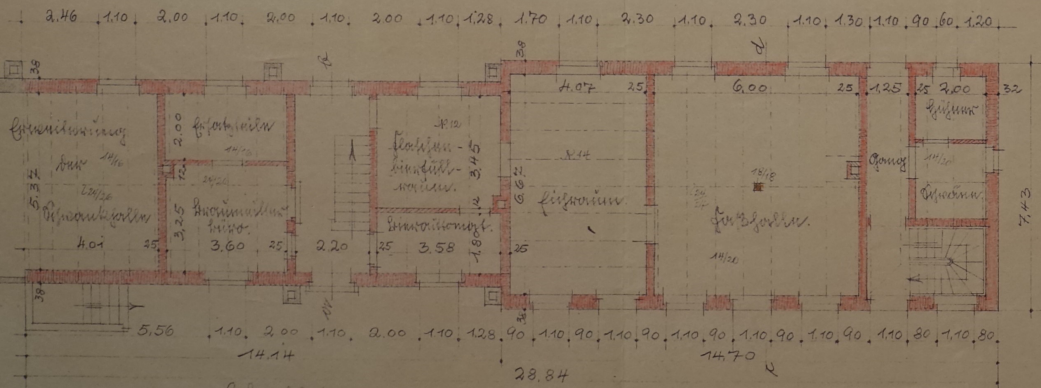 2.46 1.10 2.00 1.10 2.00 1.10 2.00 1.10 1.28 1.70 1.10 2.30 1.10 2.30 1.10 1.30 1.10 90 60 1.20
38
38
d
4.07 25 6.00 25 1.25 25 2.00 32
Erweiterung
der
Schwankhalle
5.37
4.01 25
2.00
Ersatzteile
12
3.25
Braumeister-
büro.
3.60 25
2.20
25
N.12
Flaschen-
bierfüll-
raum.
3.45
14
Bierausmgt.
3.58
1.80
25
N.14
Eichraum
6.67
Faßhalle.
14/20
Gang
Hühner
14/20
Schweine.
7.43
38
5.56 1.10 2.00 1.10 2.00 1.10 1.28 90 1.10 90 1.10 90 1.10 90 1.10 90 1.10 90 1.10 80 1.10 80
14.14
14.70
28.84